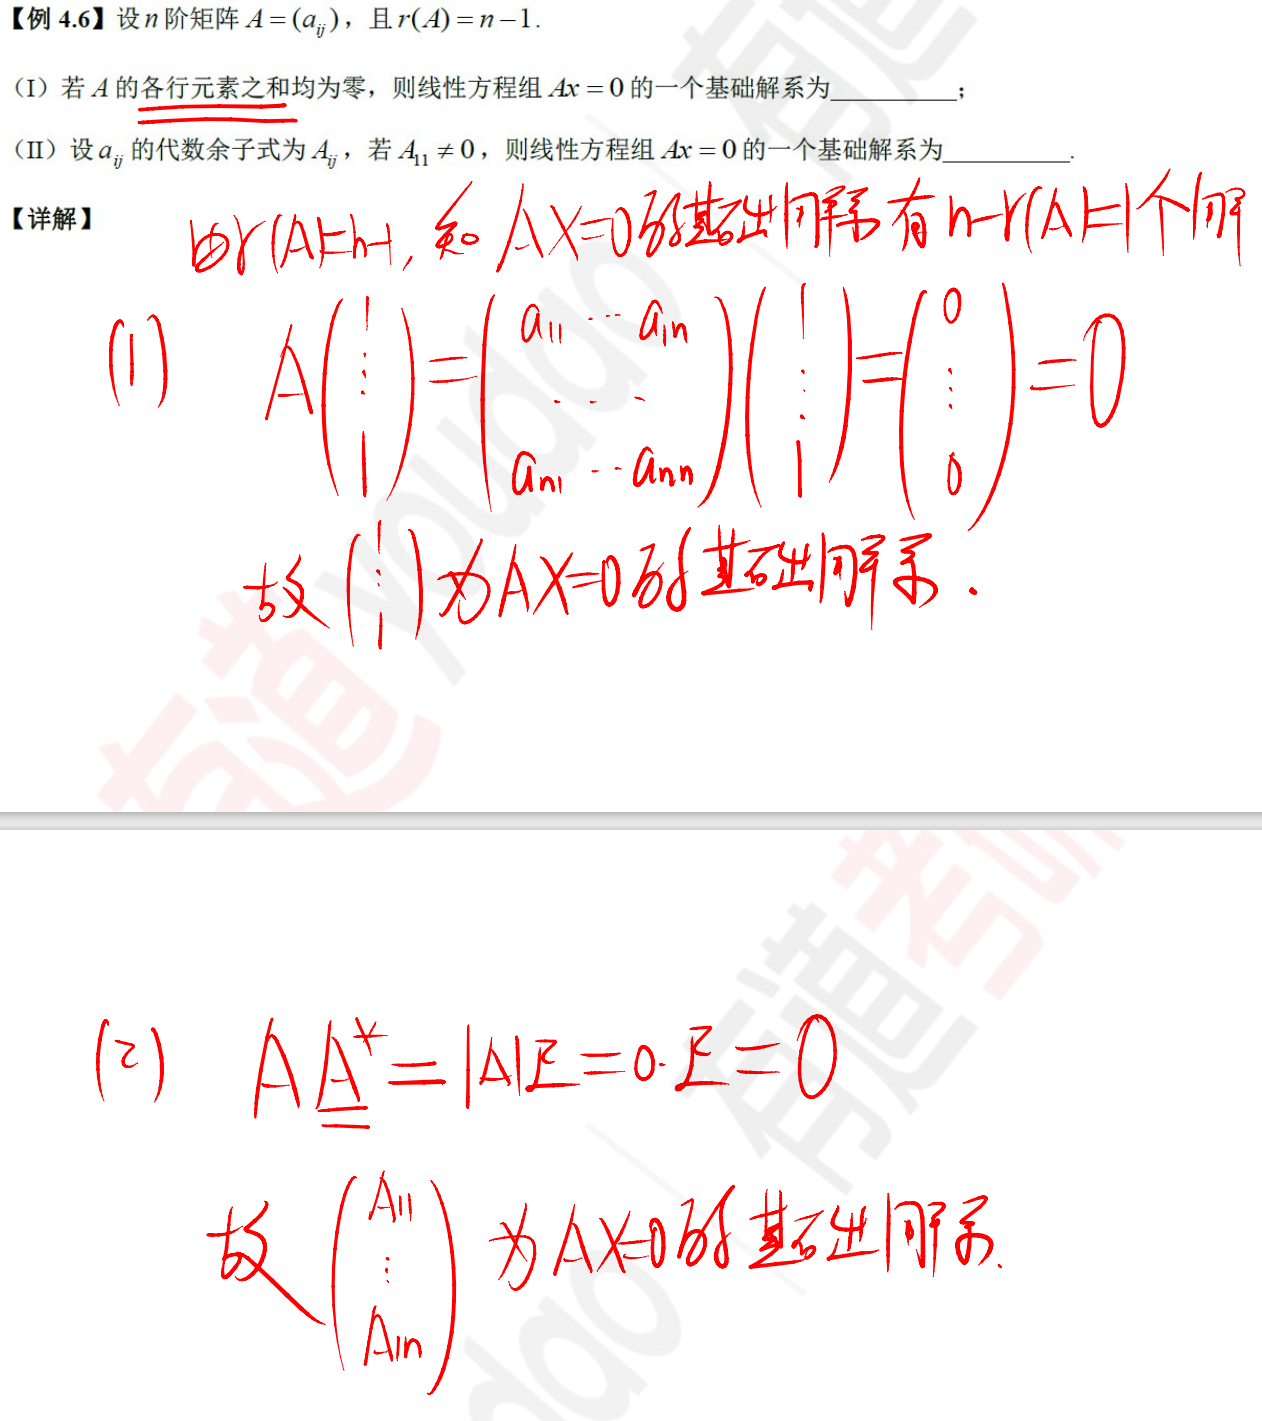 【例 4.6】设 n 阶矩阵 A = (a_ij)，且 r(A) = n − 1.
（I）若 A 的各行元素之和均为零，则线性方程组 Ax = 0 的一个基础解系为__________；
（II）设 a_ij 的代数余子式为 A_ij，若 A_11 ≠ 0，则线性方程组 Ax = 0 的一个基础解系为__________.
【详解】
由r(A)=n-1, 知 AX=0的基础解系有n-r(A)=1个解
(1) A(1 ⋮ 1) = (a11 ··· a1n ··· an1 ··· ann)(1 ⋮ 1) = (0 ⋮ 0) = 0
故(1 ⋮ 1)为AX=0的基础解系.
(2) AA* = |A|E = 0·E = 0
故(A11 ⋮ A1n)为AX=0的基础解系.
有道 youdao
有道考
有道
dao